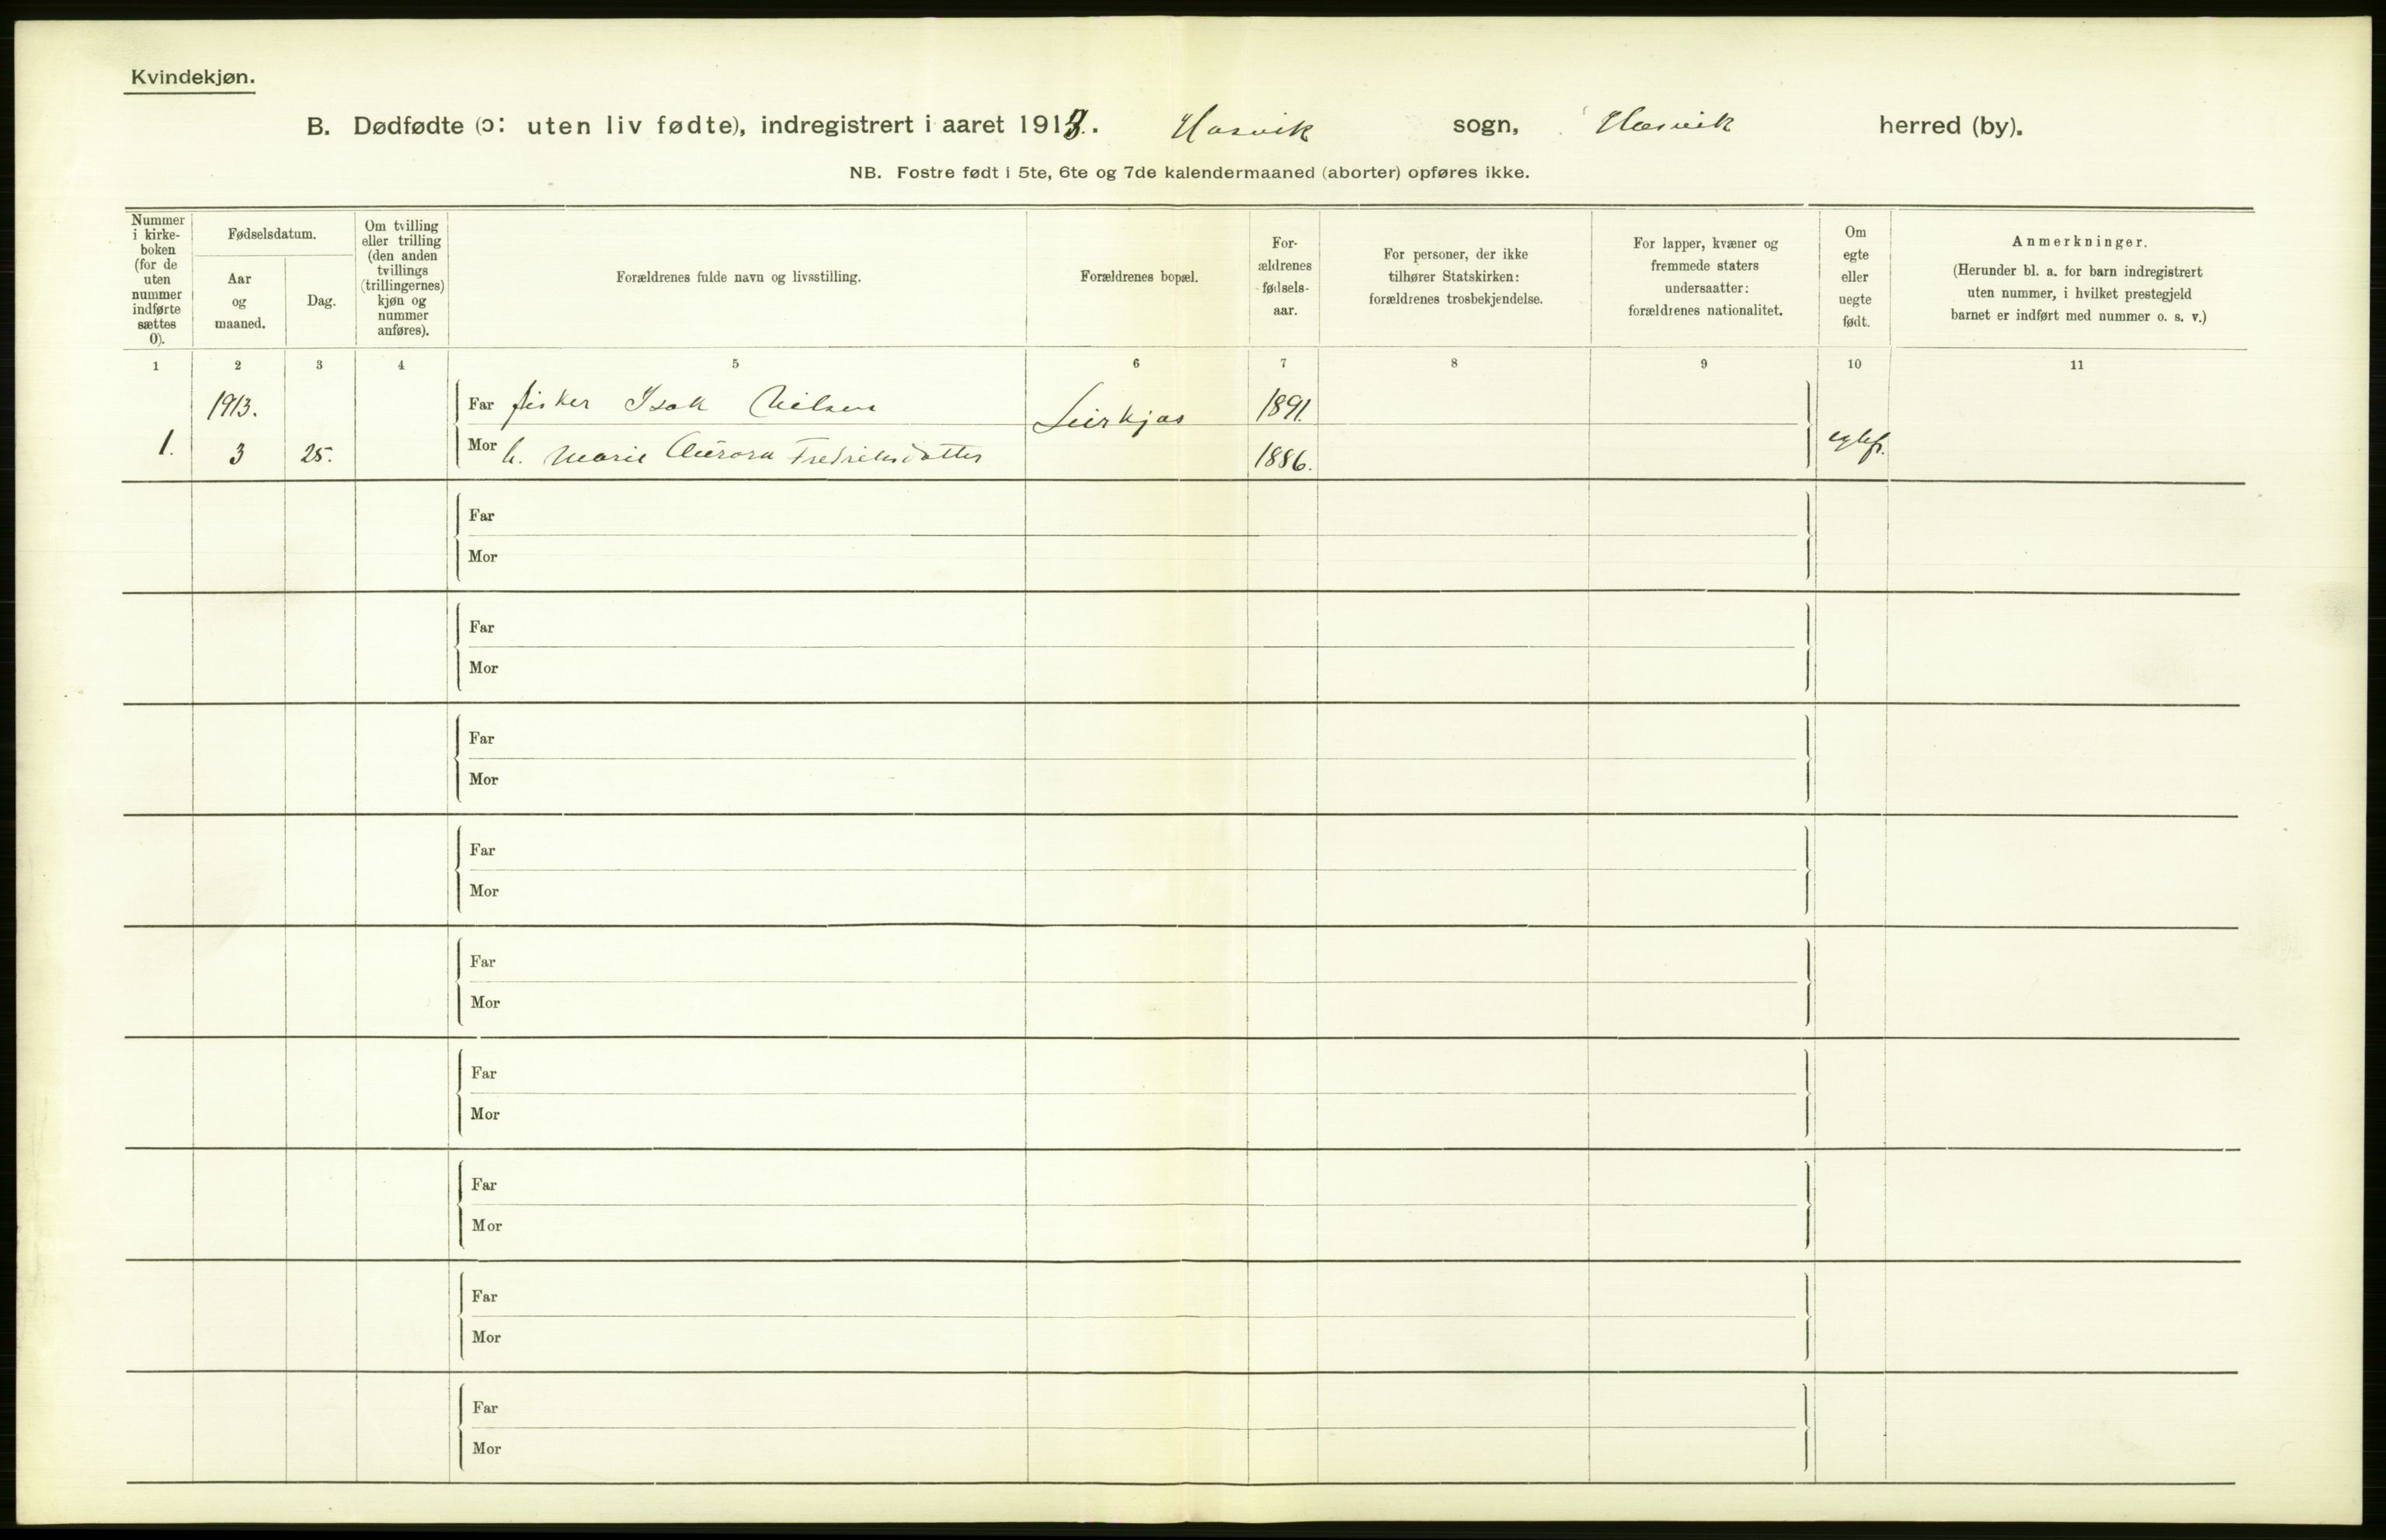 Kvindekjøn.
B. Dødfødte (ɔ: uten liv fødte), indregistrert i aaret 1913. Hasvik sogn, Hasvik herred (by).
NB. Fostre født i 5te, 6te og 7de kalendermaaned (aborter) opføres ikke.
Nummer
i kirke-
boken
(for de
uten
nummer
indførte
sættes
0).
Fødselsdatum.
Aar
og
maaned.
Dag.
Om tvilling
eller trilling
(den anden
tvillings
(trillingernes)
kjøn og
nummer
anføres).
Forældrenes fulde navn og livsstilling.
Forældrenes bopæl.
For-
ældrenes
fødsels-
aar.
For personer, der ikke
tilhører Statskirken:
forældrenes trosbekjendelse.
For lapper, kvæner og
fremmede staters
undersaatter:
forældrenes nationalitet.
Om
egte
eller
uegte
født.
Anmerkninger.
(Herunder bl. a. for barn indregistrert
uten nummer, i hvilket prestegjeld
barnet er indført med nummer o. s. v.)
1 2 3 4 5 6 7 8 9 10 11
1913.
Far fisker Isak Nilsen
1891.
1. 3 25.
Mor h. Marie Aurora Fredriksdatter
1886.
Far
Mor
Far
Mor
Far
Mor
Far
Mor
Far
Mor
Far
Mor
Far
Mor
Far
Mor
Far
Mor